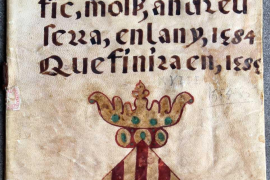 fic, moss, andreu
serra, en lany, 1584
Que finira en, 1585